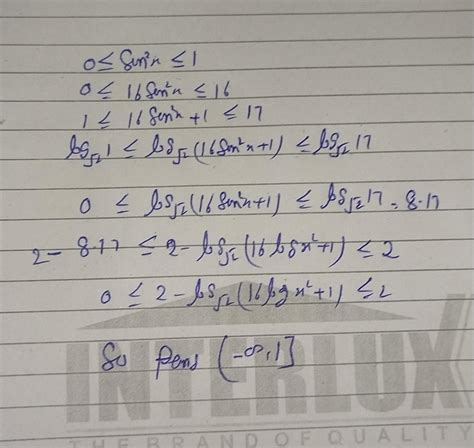 0 ≤ Sin²x ≤ 1
0 ≤ 16 Sin²x ≤ 16
1 ≤ 16 Sin²x + 1 ≤ 17
log_√2 1 ≤ log_√2 (16 Sin²x + 1) ≤ log_√2 17
0 ≤ log_√2 (16 Sin²x + 1) ≤ log_√2 17 = 8.17
2 - 8.17 ≤ 2 - log_√2 (16 log x² + 1) ≤ 2
0 ≤ 2 - log_√2 (16 log x² + 1) ≤ 2
So (-∞, 1]
INTERLUX
THE BRAND OF QUALITY